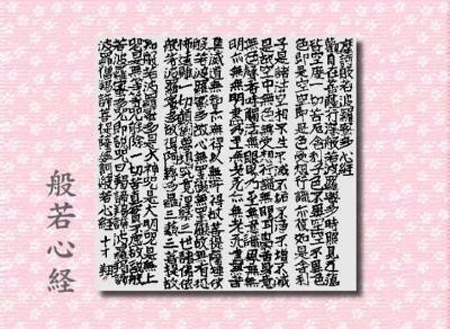 摩訶般若波羅蜜多心経
観自在菩薩行深般若波羅蜜多時照見五蘊
皆空度一切苦厄舎利子色不異空空不異色
色即是空空即是色受想行識亦復如是舎利
子是諸法空相不生不滅不垢不浄不増不減
是故空中無色無受想行識無眼耳鼻舌身意
無色声香味触法無眼界乃至無意識界無無
明亦無無明尽乃至無老死亦無老死尽無苦
集滅道無智亦無得以無所得故菩提薩埵依
般若波羅蜜多故心無罣礙無罣礙故無有恐
怖遠離一切顛倒夢想究竟涅槃三世諸仏依
般若波羅蜜多故得阿耨多羅三藐三菩提故
知般若波羅蜜多是大神呪是大明呪是無上
呪是無等等呪能除一切苦真実不虚故説般
若波羅蜜多呪即説呪曰羯諦羯諦波羅羯諦
波羅僧羯諦菩提薩婆訶般若心経 十才 翔
般若心経